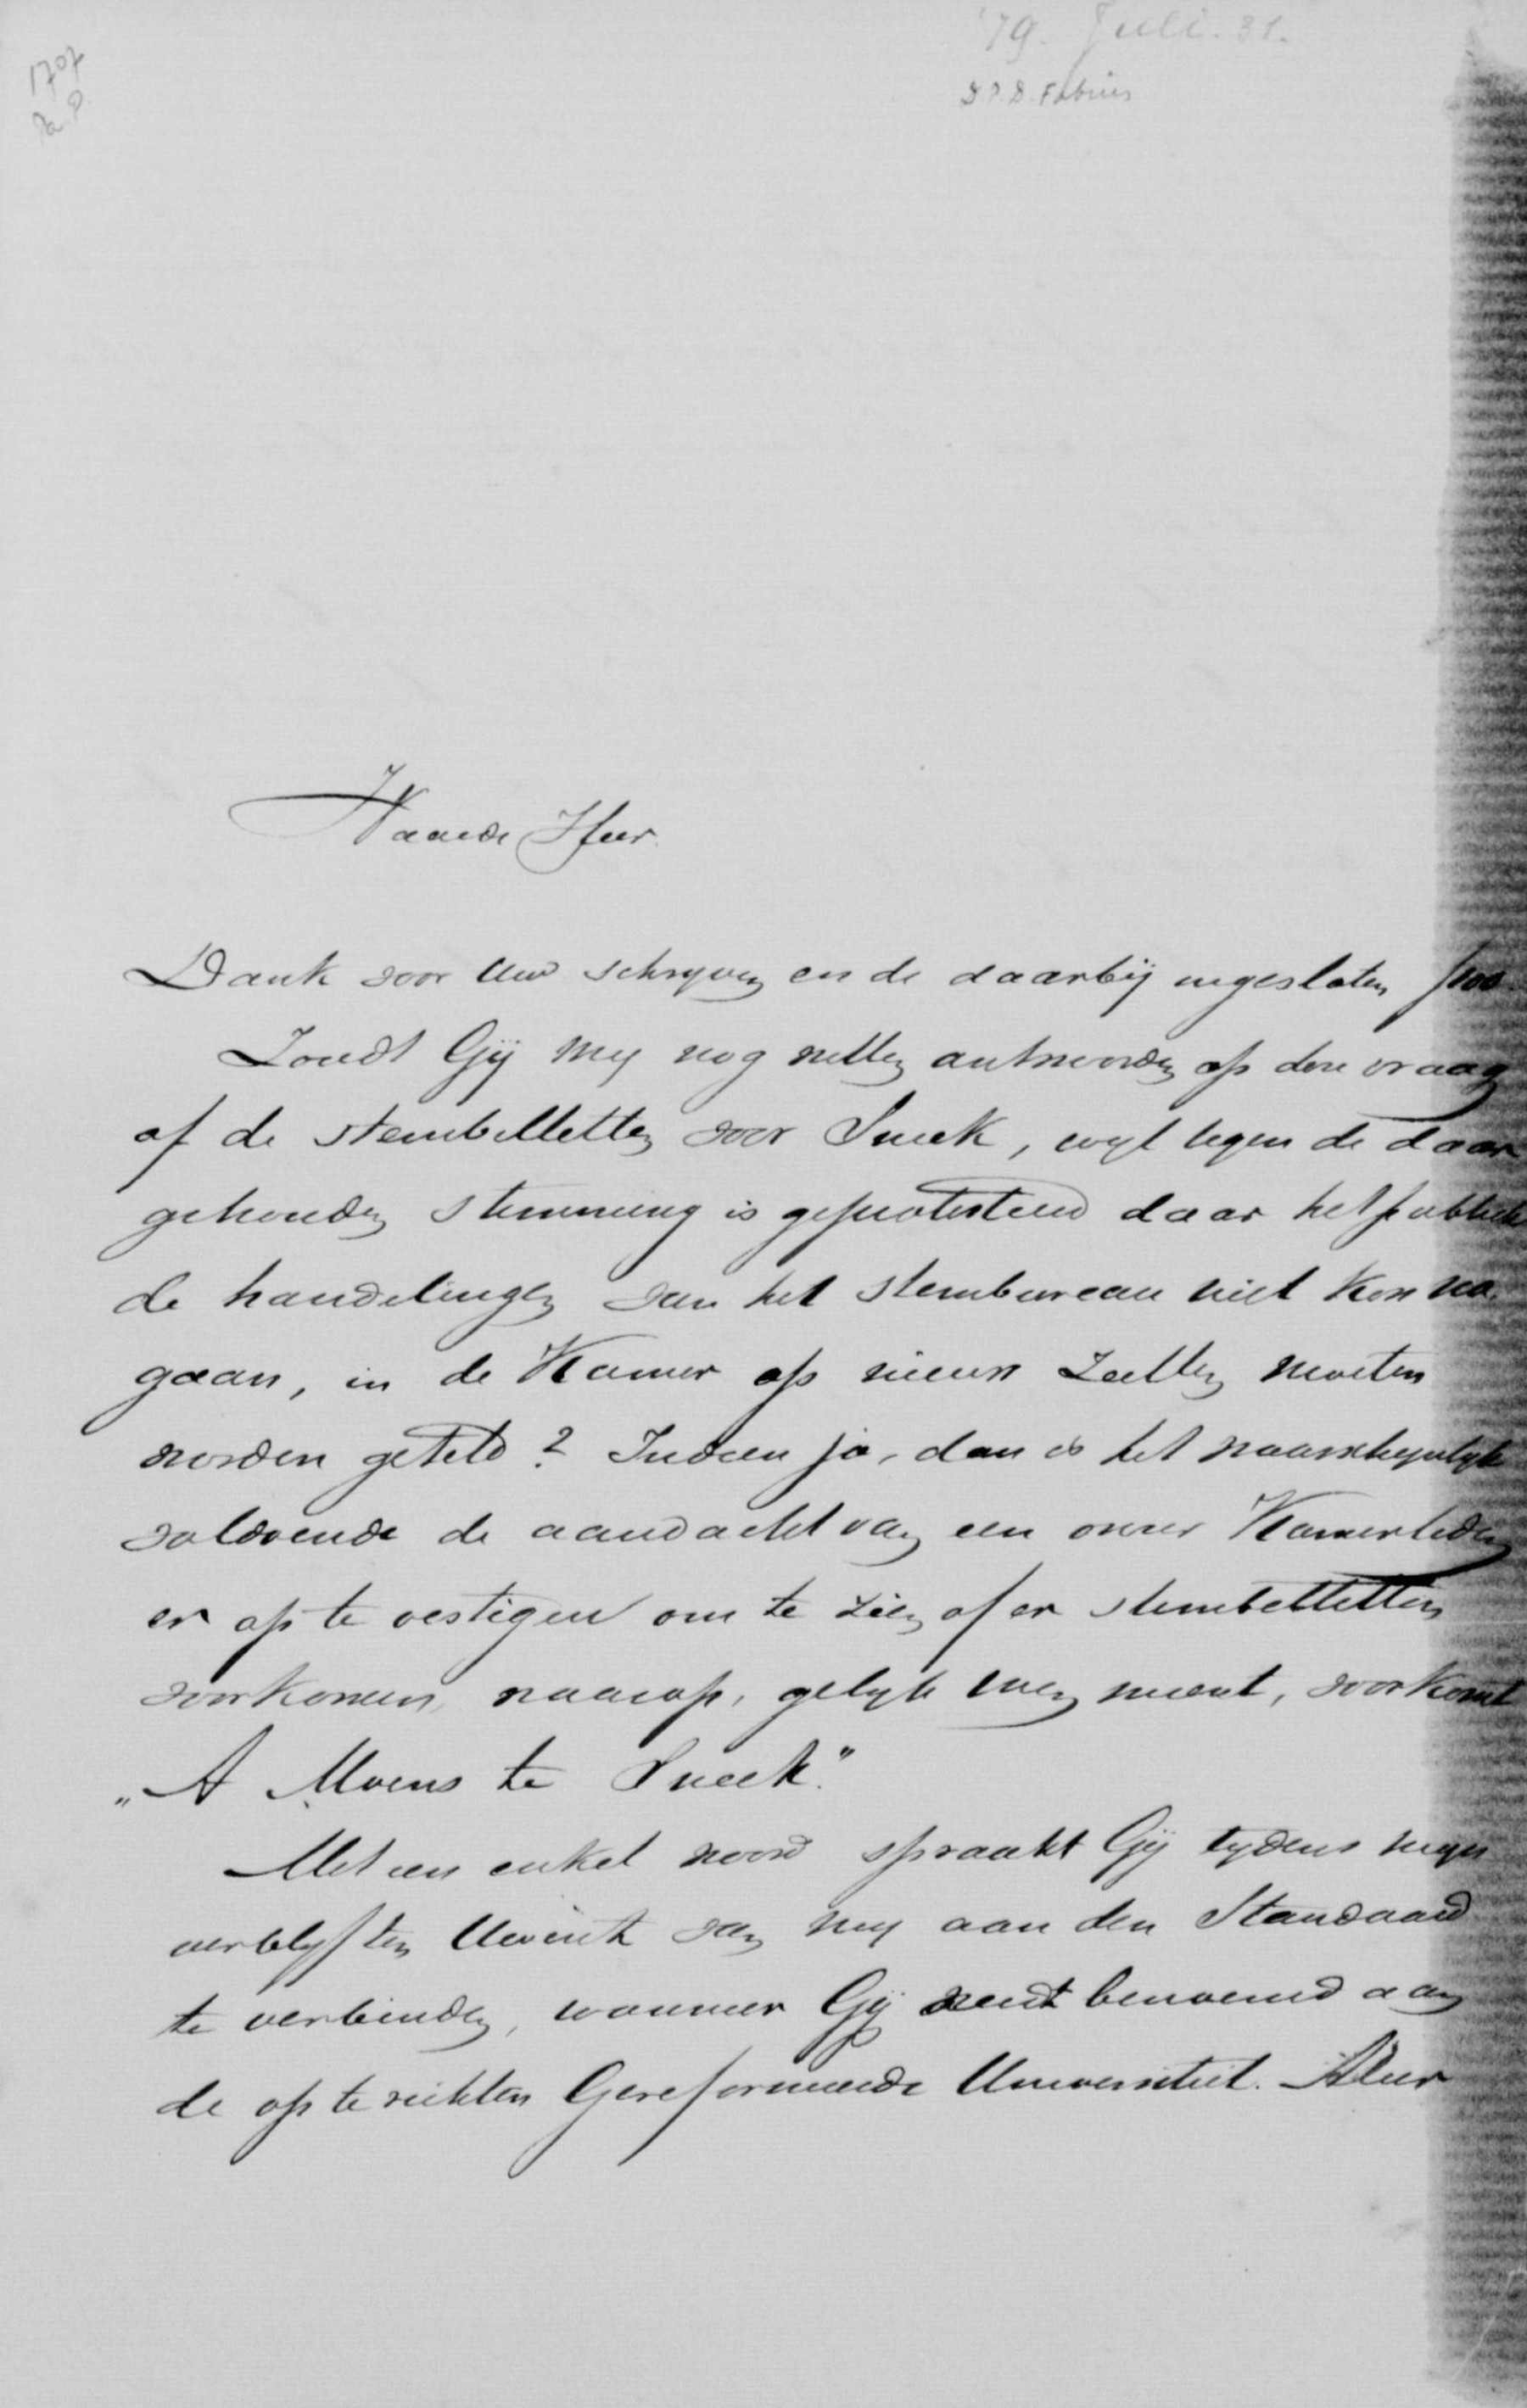 '79. Juli. 31.
1707
D.P.D. Fabius
Waarde Heer.
Dank voor Uw schrijven en de daarbij ingesloten f100.
Zoudt Gij mij nog willen antwoorden op deze vraag
of de stembilletten voor Sneek, wijl tegen de daar
gehouden stemming is geprotesteerd daar het publiek
de handelingen van het stembureau niet kon na
gaan, in de Kamer op nieuw zullen moeten
worden geteld? Indien ja, dan is het waarschijnlijk
voldoende de aandacht van een onzer Kamerleden
er op te vestigen om te zien of er stembilletten
voorkomen, waarop, gelijk men meent, voorkomt
„A Moens te Sneek."
Met een enkel woord spraakt Gij tijdens mijn
verblijf ten Uwent van mij aan den Standaard
te verbinden, wanneer Gij werdt benoemd aan
de op te richten Gereformeerde Universiteit.